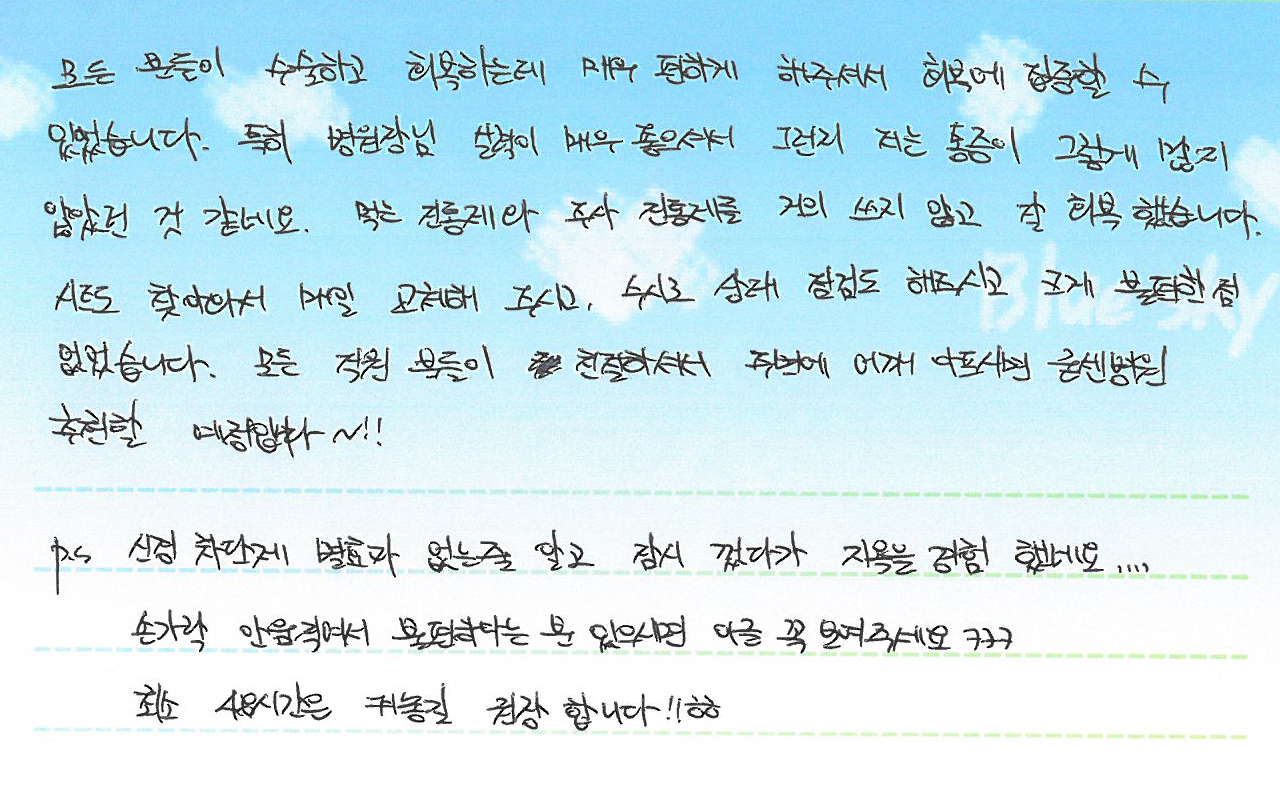 모든 분들이 수술하고 회복하는데 매우 편하게 해주셔서 회복에 집중할 수
있었습니다. 특히 병원장님 실력이 매우 좋으셔서 그런지 저는 통증이 그렇게 많지
않았던 것 같네요. 먹는 진통제와 주사 진통제를 거의 쓰지 않고 잘 회복 했습니다.
시트도 찾아와서 매일 교체해 주시고, 수시로 상태 점검도 해주시고 크게 불편한 점
없었습니다. 모든 직원 분들이 친절하셔서 주변에 어깨 아프시면 굿센병원
추천할 예정입니다~!!
Blue Sky
p.s 신경 차단제 별효과 없는줄 알고 잠시 껐다가 지옥을 경험 했네요....
손가락 안움직여서 불편하다는 분 있으시면 이글 꼭 보여주세요 ㅋㅋㅋ
최소 48시간은 켜놓길 권장 합니다!!ㅎㅎ